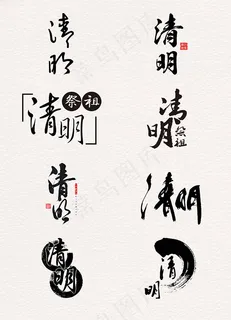 清明
清明
「清明」祭祖
清明祭祖
清明
清明
清明
清明